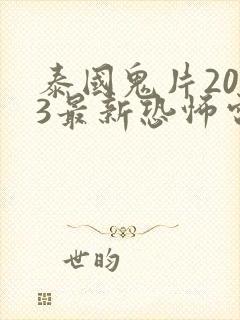 泰國鬼片20
3最新恐怖
世昀